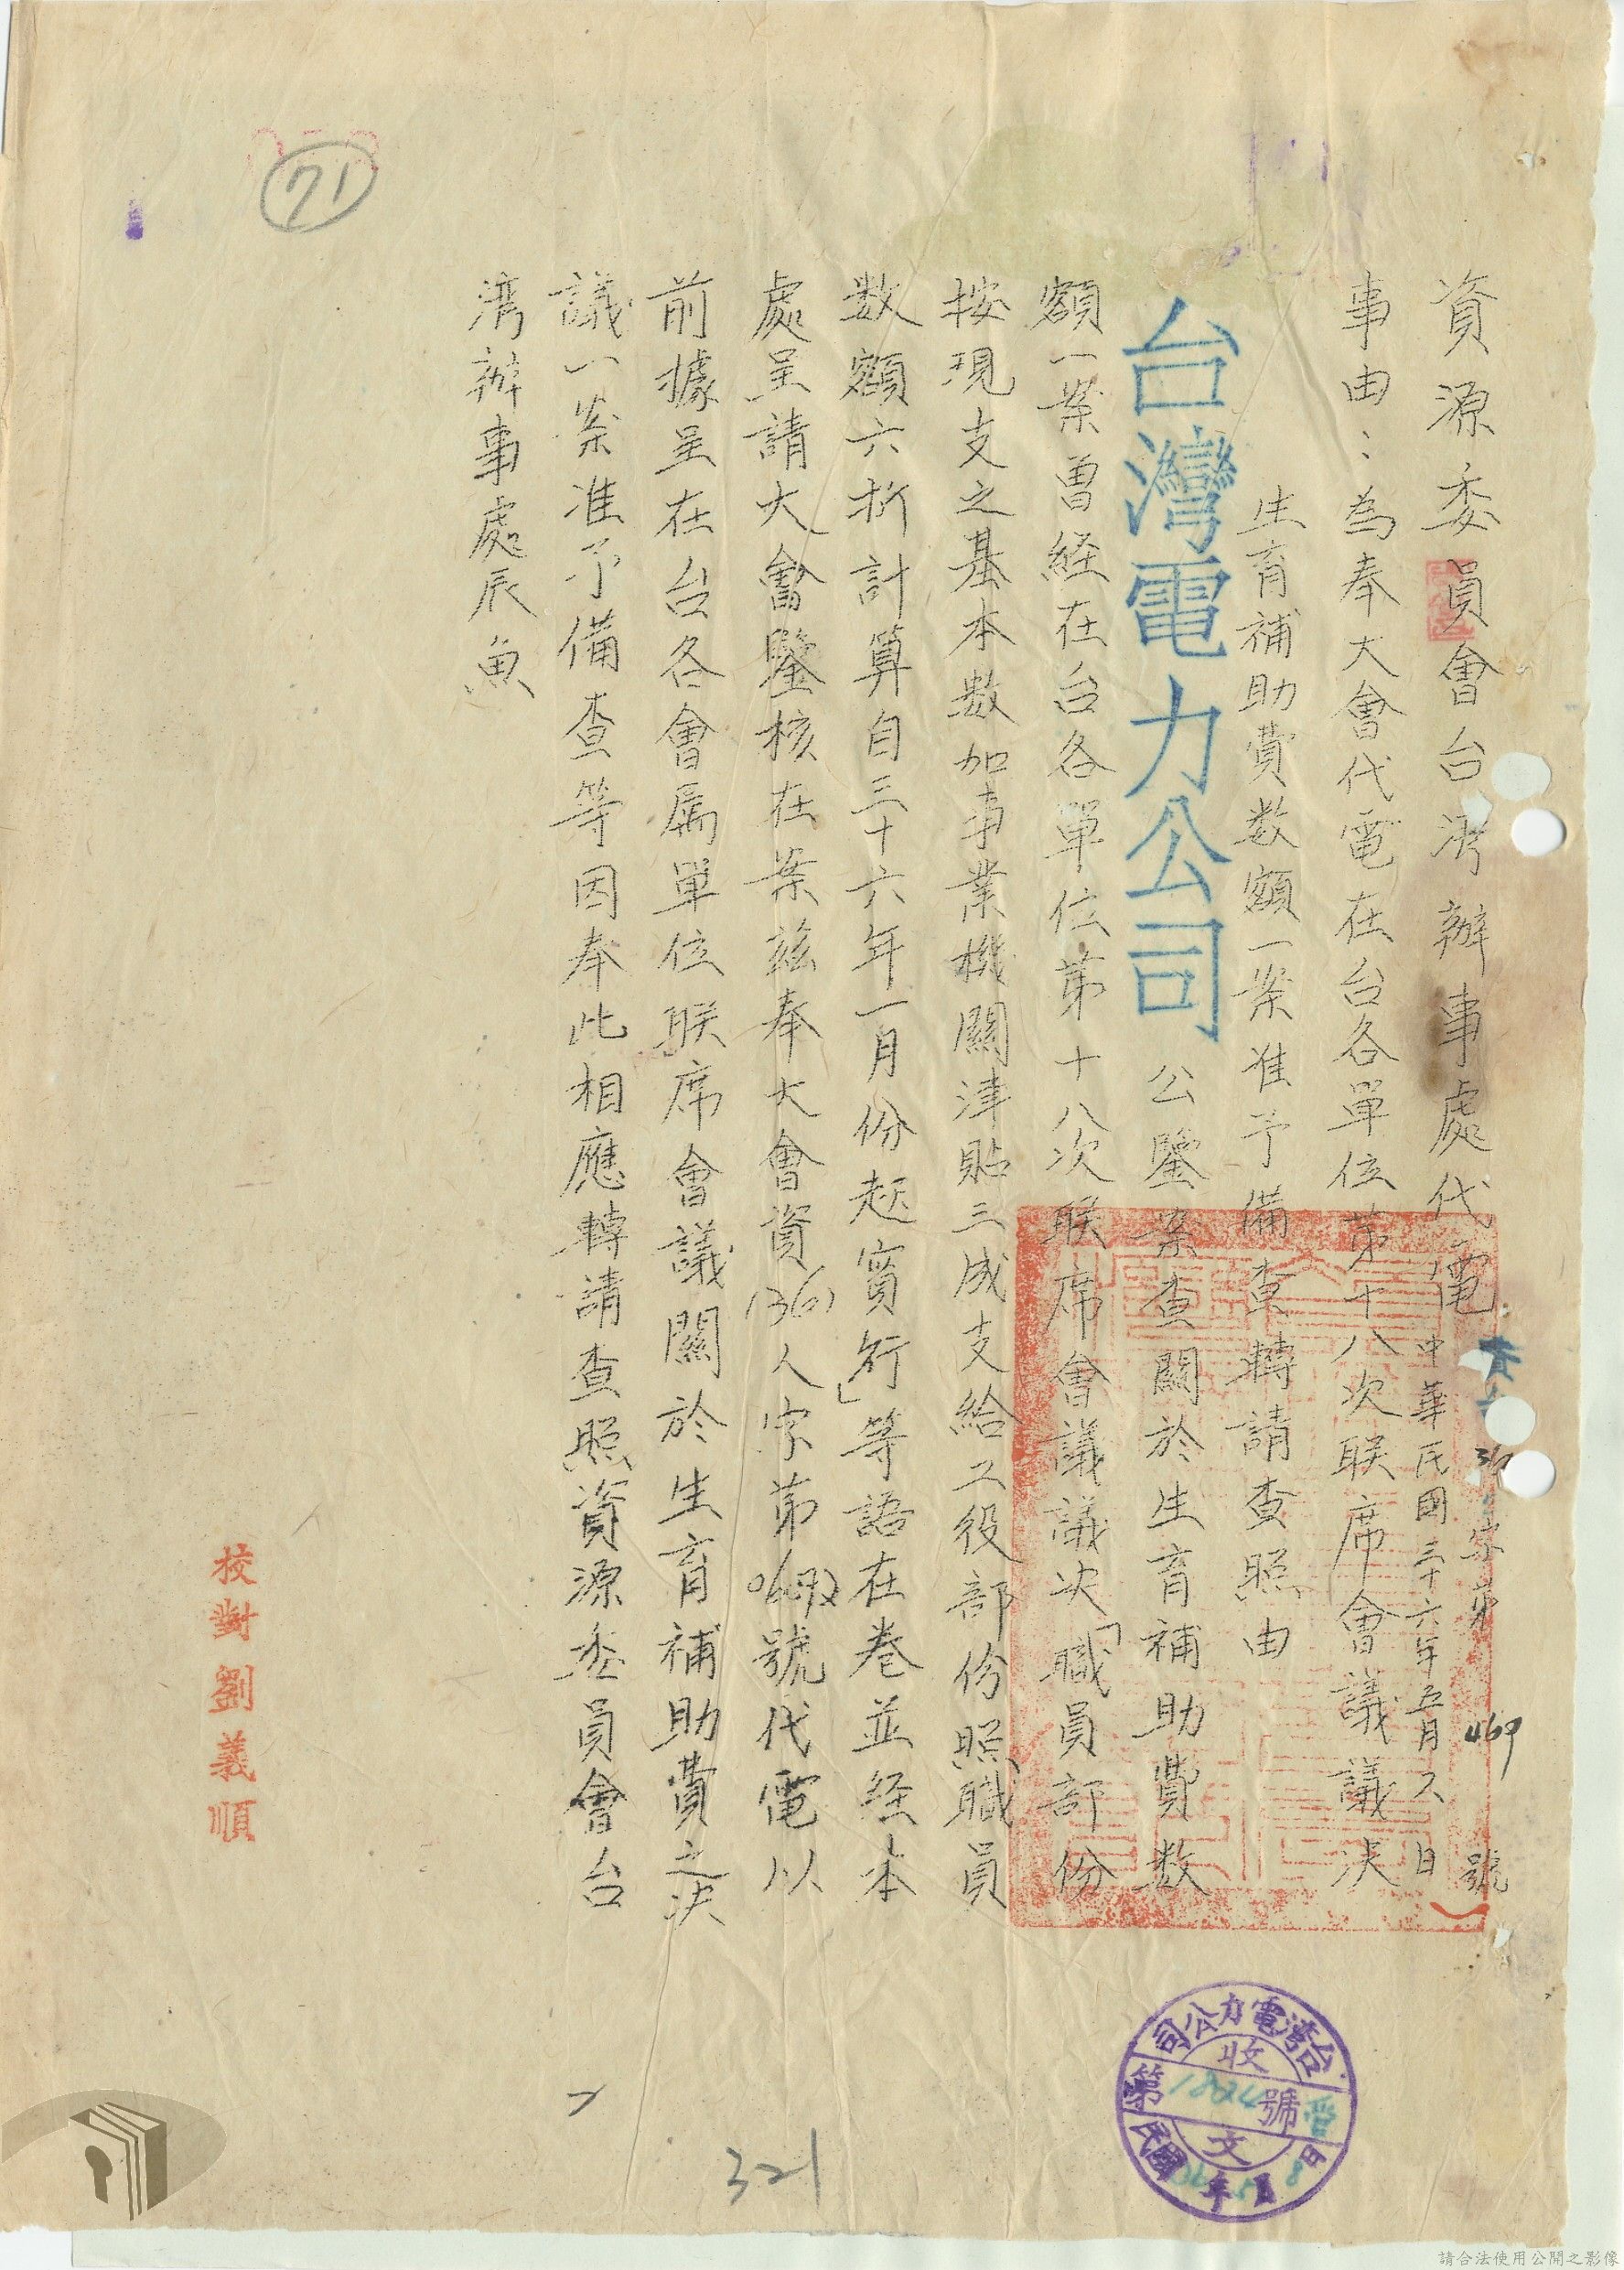 資源委員會台湾辦事處代電
字第 469 號
中華民國三十六年五月 日
事由：為奉大會代電在台各單位第十八次联席會議議決
生育補助費数額一案准予備查轉請查照由
台灣電力公司公鑒案查關於生育補助費数
額一案曽経在台各單位第十八次联席會議議决「職員部份
按現支之基本数加事業機關津貼三成支給工役部份照職員
数額六折計算自三十六年一月份起實行」等語在卷並経本
處呈請大會鑒核在案兹奉大會資(36)人字第 號代電以
前據呈在台各會属單位联席會議關於生育補助費之决
議一案准予備查等因奉此相應轉請查照資源委員會台
湾辦事處辰魚
校對劉義順
71
321
台灣電力公司
收文
第 號
民國 年 月 日
請合法使用公開之影像